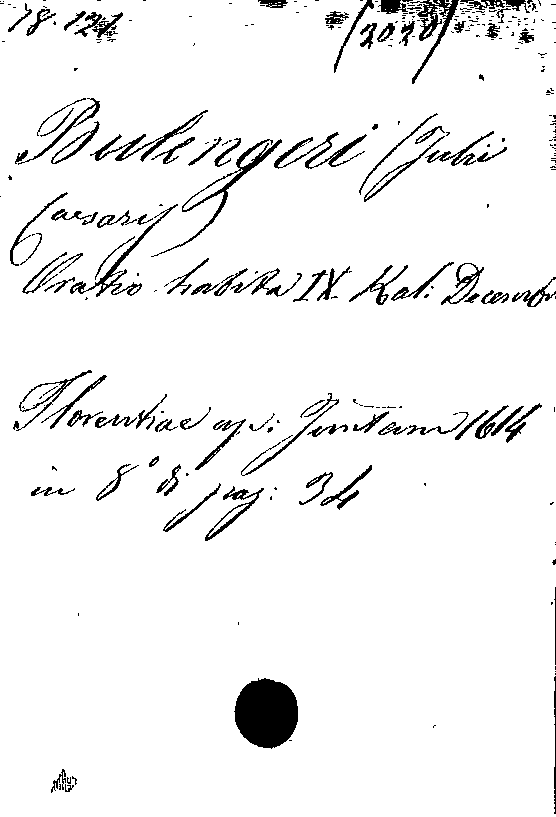 78.121 (2020)
Bulengeri (Julii
Caesaris)
Oratio habita IX Kal: Decembr
Florentiae ap: Juntam 1614
in 8° di pag: 34